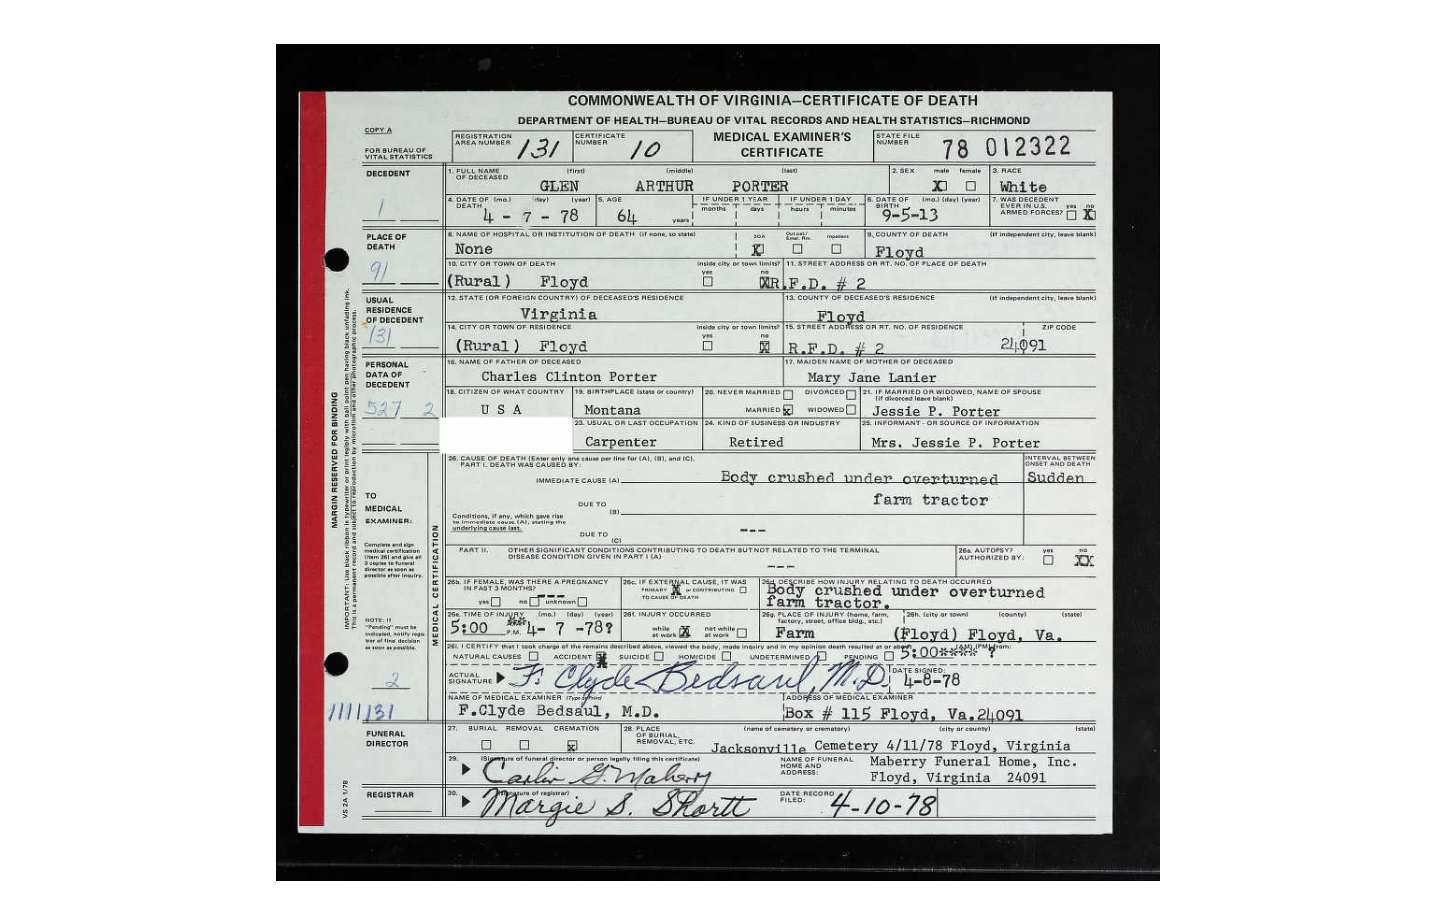 COMMONWEALTH OF VIRGINIA—CERTIFICATE OF DEATH
DEPARTMENT OF HEALTH—BUREAU OF VITAL RECORDS AND HEALTH STATISTICS—RICHMOND
COPY A
FOR BUREAU OF VITAL STATISTICS
REGISTRATION AREA NUMBER 131
CERTIFICATE NUMBER 10
MEDICAL EXAMINER'S CERTIFICATE
STATE FILE NUMBER 78 012322
DECEDENT
1
1. FULL NAME OF DECEASED (first) (middle) (last)
GLEN ARTHUR PORTER
2. SEX male female X
3. RACE White
4. DATE OF DEATH (mo.) (day) (year) 4 - 7 - 78
5. AGE 64 years
IF UNDER 1 YEAR months days
IF UNDER 1 DAY hours minutes
6. DATE OF BIRTH (mo.) (day) (year) 9-5-13
7. WAS DECEDENT EVER IN U.S. ARMED FORCES? yes no X
PLACE OF DEATH
91
8. NAME OF HOSPITAL OR INSTITUTION OF DEATH (if none, so state)
None
DOA Outpat/Emer. Rm. Inpatient X
9. COUNTY OF DEATH (if independent city, leave blank)
Floyd
10. CITY OR TOWN OF DEATH inside city or town limits? yes no X
(Rural) Floyd
11. STREET ADDRESS OR RT. NO. OF PLACE OF DEATH
R.F.D. # 2
USUAL RESIDENCE OF DECEDENT
131
12. STATE (OR FOREIGN COUNTRY) OF DECEASED'S RESIDENCE
Virginia
13. COUNTY OF DECEASED'S RESIDENCE (if independent city, leave blank)
Floyd
14. CITY OR TOWN OF RESIDENCE inside city or town limits? yes no X
(Rural) Floyd
15. STREET ADDRESS OR RT. NO. OF RESIDENCE ZIP CODE
R.F.D. # 2 24091
PERSONAL DATA OF DECEDENT
527 2
16. NAME OF FATHER OF DECEASED
Charles Clinton Porter
17. MAIDEN NAME OF MOTHER OF DECEASED
Mary Jane Lanier
18. CITIZEN OF WHAT COUNTRY
U S A
19. BIRTHPLACE (state or country)
Montana
20. NEVER MARRIED DIVORCED
MARRIED X WIDOWED
21. IF MARRIED OR WIDOWED, NAME OF SPOUSE (if divorced leave blank)
Jessie P. Porter
23. USUAL OR LAST OCCUPATION
Carpenter
24. KIND OF BUSINESS OR INDUSTRY
Retired
25. INFORMANT - OR SOURCE OF INFORMATION
Mrs. Jessie P. Porter
MARGIN RESERVED FOR BINDING
IMPORTANT: Use black ribbon in typewriter or print legibly with ball point pen having black unfading ink.
This is a permanent record and subject to reproduction by microfilm and other photographic process.
MEDICAL CERTIFICATION
26. CAUSE OF DEATH (Enter only one cause per line for (A), (B), and (C).
PART I. DEATH WAS CAUSED BY:
INTERVAL BETWEEN ONSET AND DEATH
IMMEDIATE CAUSE (A) Body crushed under overturned Sudden
DUE TO (B) farm tractor
Conditions, if any, which gave rise to immediate cause (A), stating the underlying cause last.
DUE TO (C) ---
TO MEDICAL EXAMINER:
Complete and sign medical certification (item 26) and give all 3 copies to funeral director as soon as possible after inquiry.
PART II. OTHER SIGNIFICANT CONDITIONS CONTRIBUTING TO DEATH BUT NOT RELATED TO THE TERMINAL DISEASE CONDITION GIVEN IN PART I (A)
---
26a. AUTOPSY? AUTHORIZED BY: yes no XX
26b. IF FEMALE, WAS THERE A PREGNANCY IN PAST 3 MONTHS? ---
yes no unknown
26c. IF EXTERNAL CAUSE, IT WAS PRIMARY X or CONTRIBUTING TO CAUSE OF DEATH
26d. DESCRIBE HOW INJURY RELATING TO DEATH OCCURRED
Body crushed under overturned
farm tractor.
26e. TIME OF INJURY (mo.) (day) (year)
5:00 P.M. 4- 7 -78?
26f. INJURY OCCURRED
while at work X not while at work
26g. PLACE OF INJURY (home, farm, factory, street, office bldg., etc.)
Farm
26h. (city or town) (county) (state)
(Floyd) Floyd, Va.
NOTE: If "Pending" must be indicated, notify registrar of final decision as soon as possible.
26i. I CERTIFY that I took charge of the remains described above, viewed the body, made inquiry and in my opinion death resulted at or about 5:00**** ? (AM) (PM) from:
NATURAL CAUSES ACCIDENT X SUICIDE HOMICIDE UNDETERMINED PENDING
2
ACTUAL SIGNATURE F. Clyde Bedsaul, M.D.
DATE SIGNED: 4-8-78
NAME OF MEDICAL EXAMINER (Type or Print)
F.Clyde Bedsaul, M.D.
ADDRESS OF MEDICAL EXAMINER
Box # 115 Floyd, Va.24091
1111131
FUNERAL DIRECTOR
27. BURIAL REMOVAL CREMATION X
28. PLACE OF BURIAL, REMOVAL, ETC. (name of cemetery or crematory) (city or county) (state)
Jacksonville Cemetery 4/11/78 Floyd, Virginia
29. (Signature of funeral director or person legally filing this certificate)
Carlin G. Maberry
NAME OF FUNERAL HOME AND ADDRESS:
Maberry Funeral Home, Inc.
Floyd, Virginia 24091
REGISTRAR
30. (Signature of registrar)
Margie S. Shortt
DATE RECORD FILED: 4-10-78
VS 2A 1/78